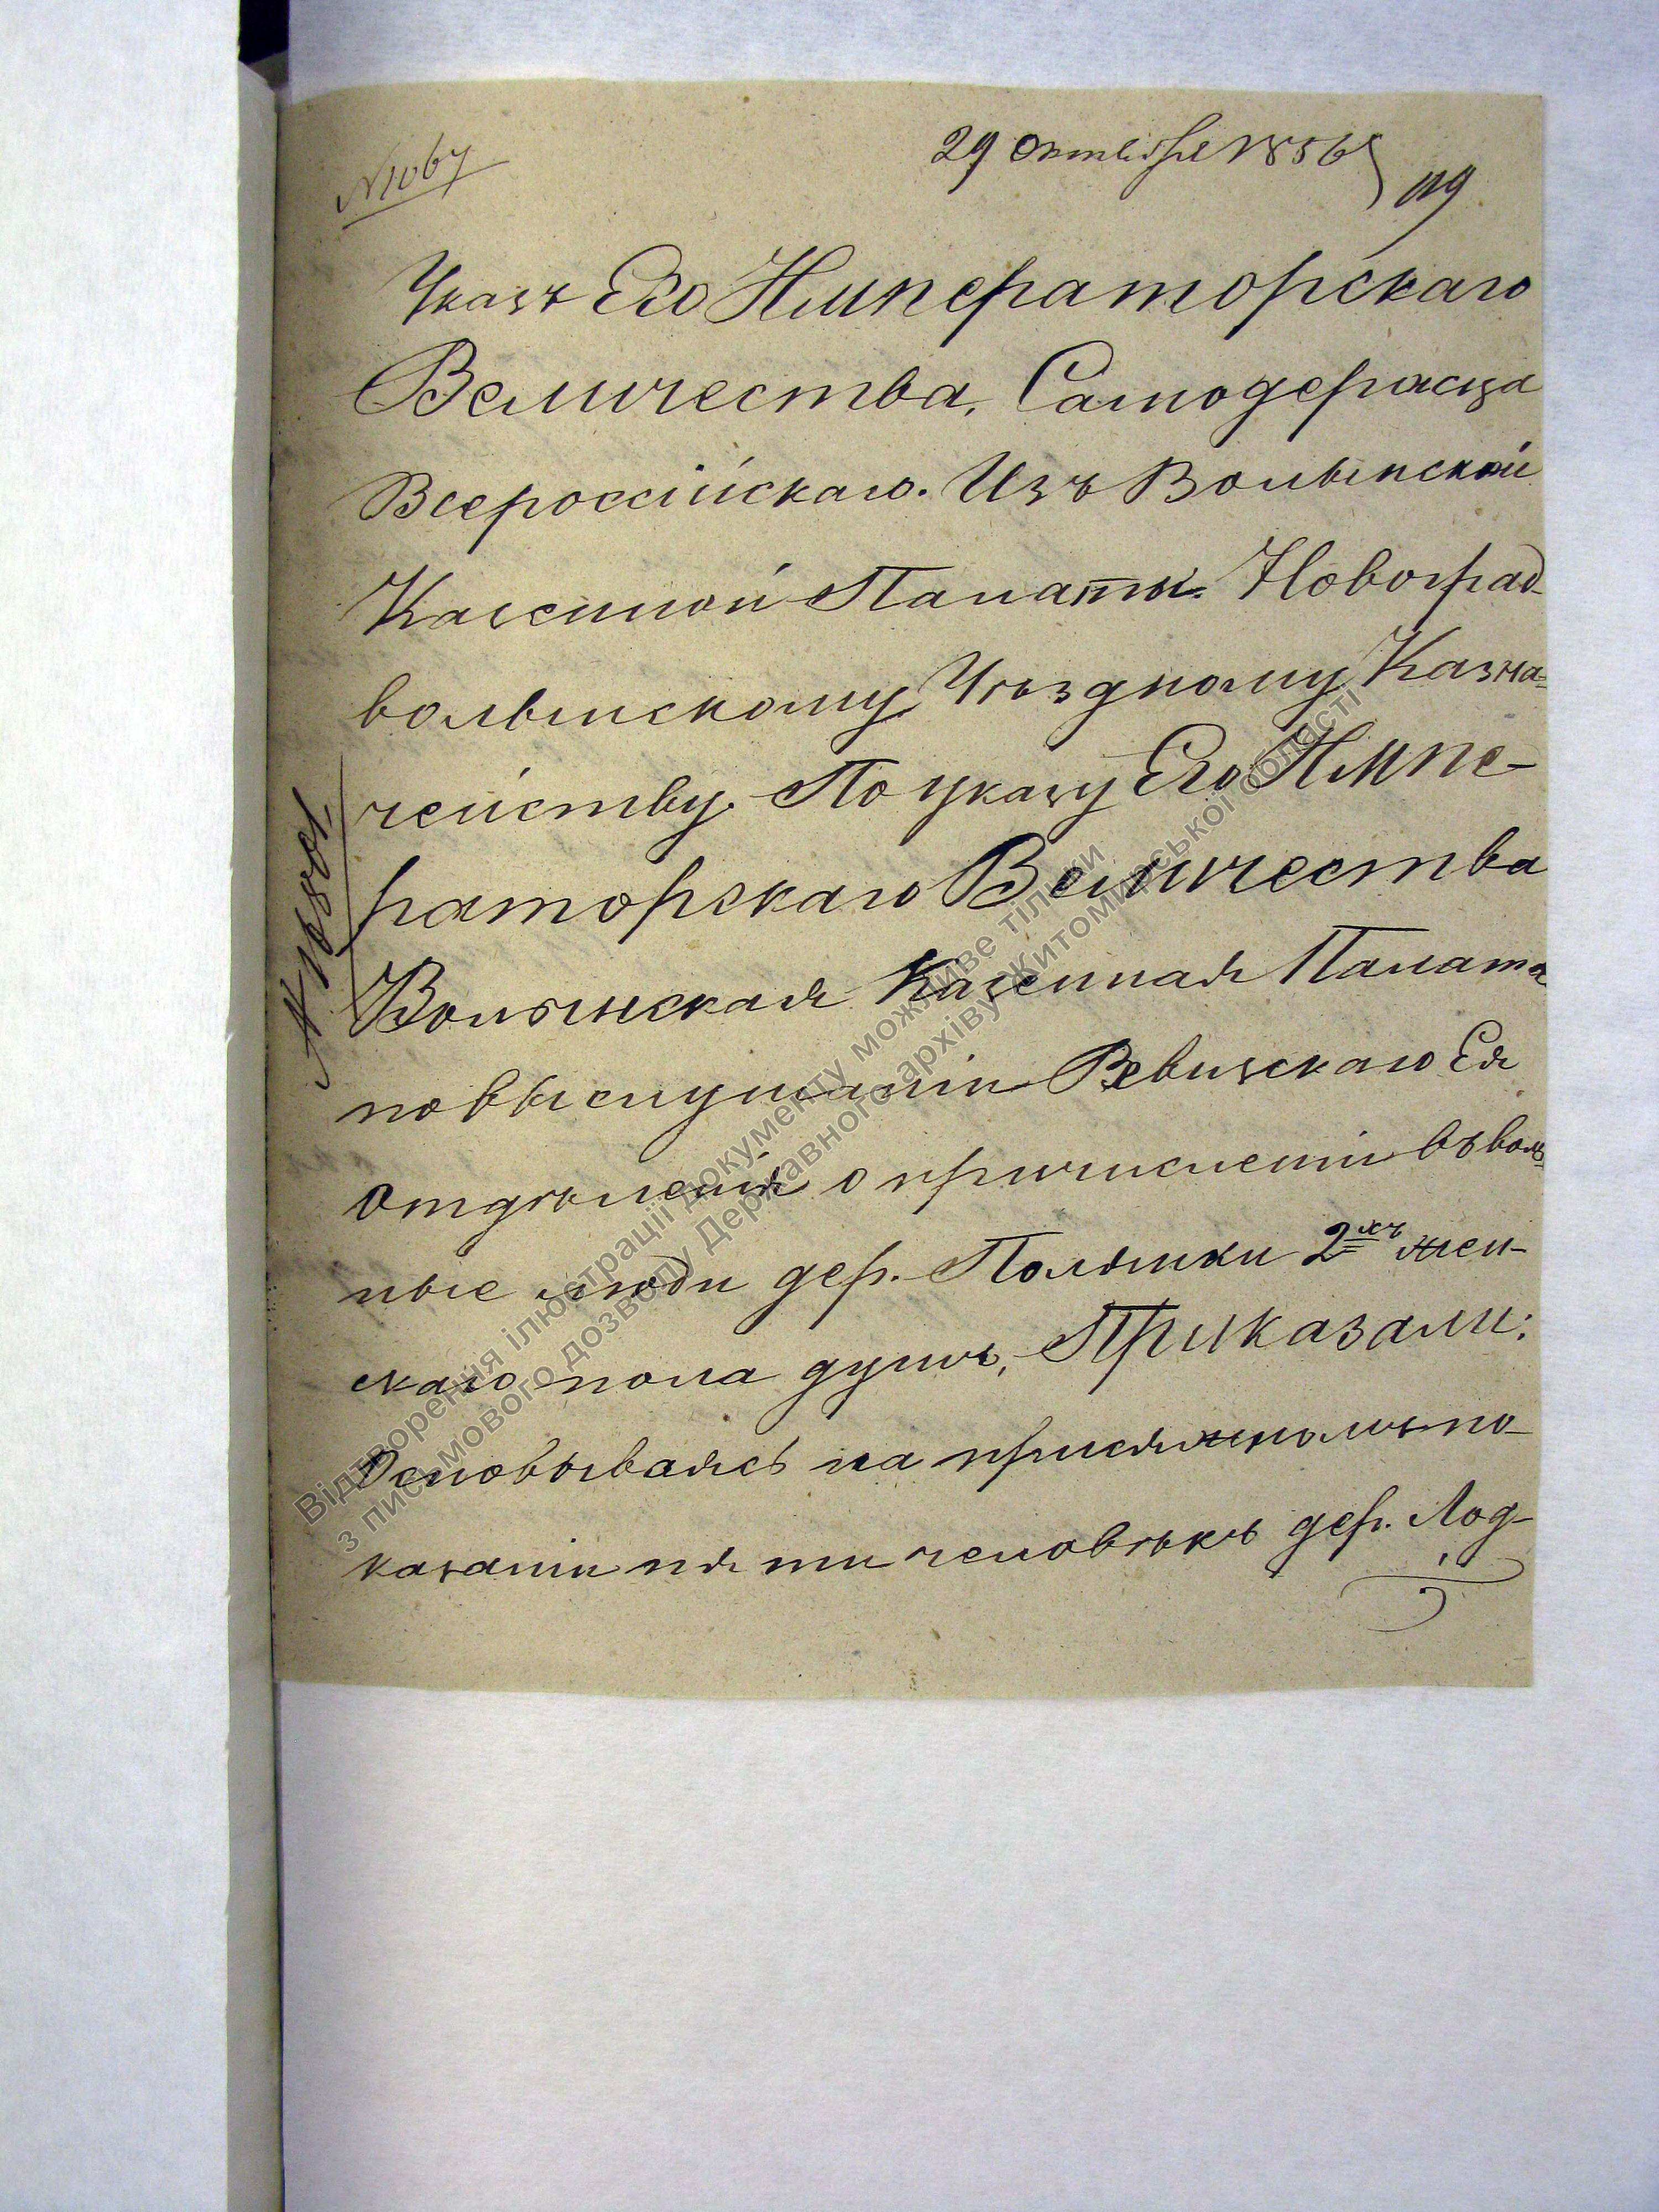 N 1067
29 Октября 1856
119
Указъ Его Императорскаго
Величества, Самодержца
Всероссійскаго. Изъ Волынской
Казенной Палаты. Новоград-
волынскому Уѣздному Казна=
чейству. По указу Его Импе-
раторскаго Величества
Волынская Казенная Палата
по выслушаніи Ревизскаго Ея
Отдѣленія о причисленіи въ воль=
ные люди дер. Полянки 2хъ жен-
скаго пола душъ, Приказали:
Основываясь на присяжномъ по-
казаніи пяти человѣкъ дер. Лод-
Відтворення ілюстрації документу можливе тільки
з письмового дозволу Державного архіву Житомирської області